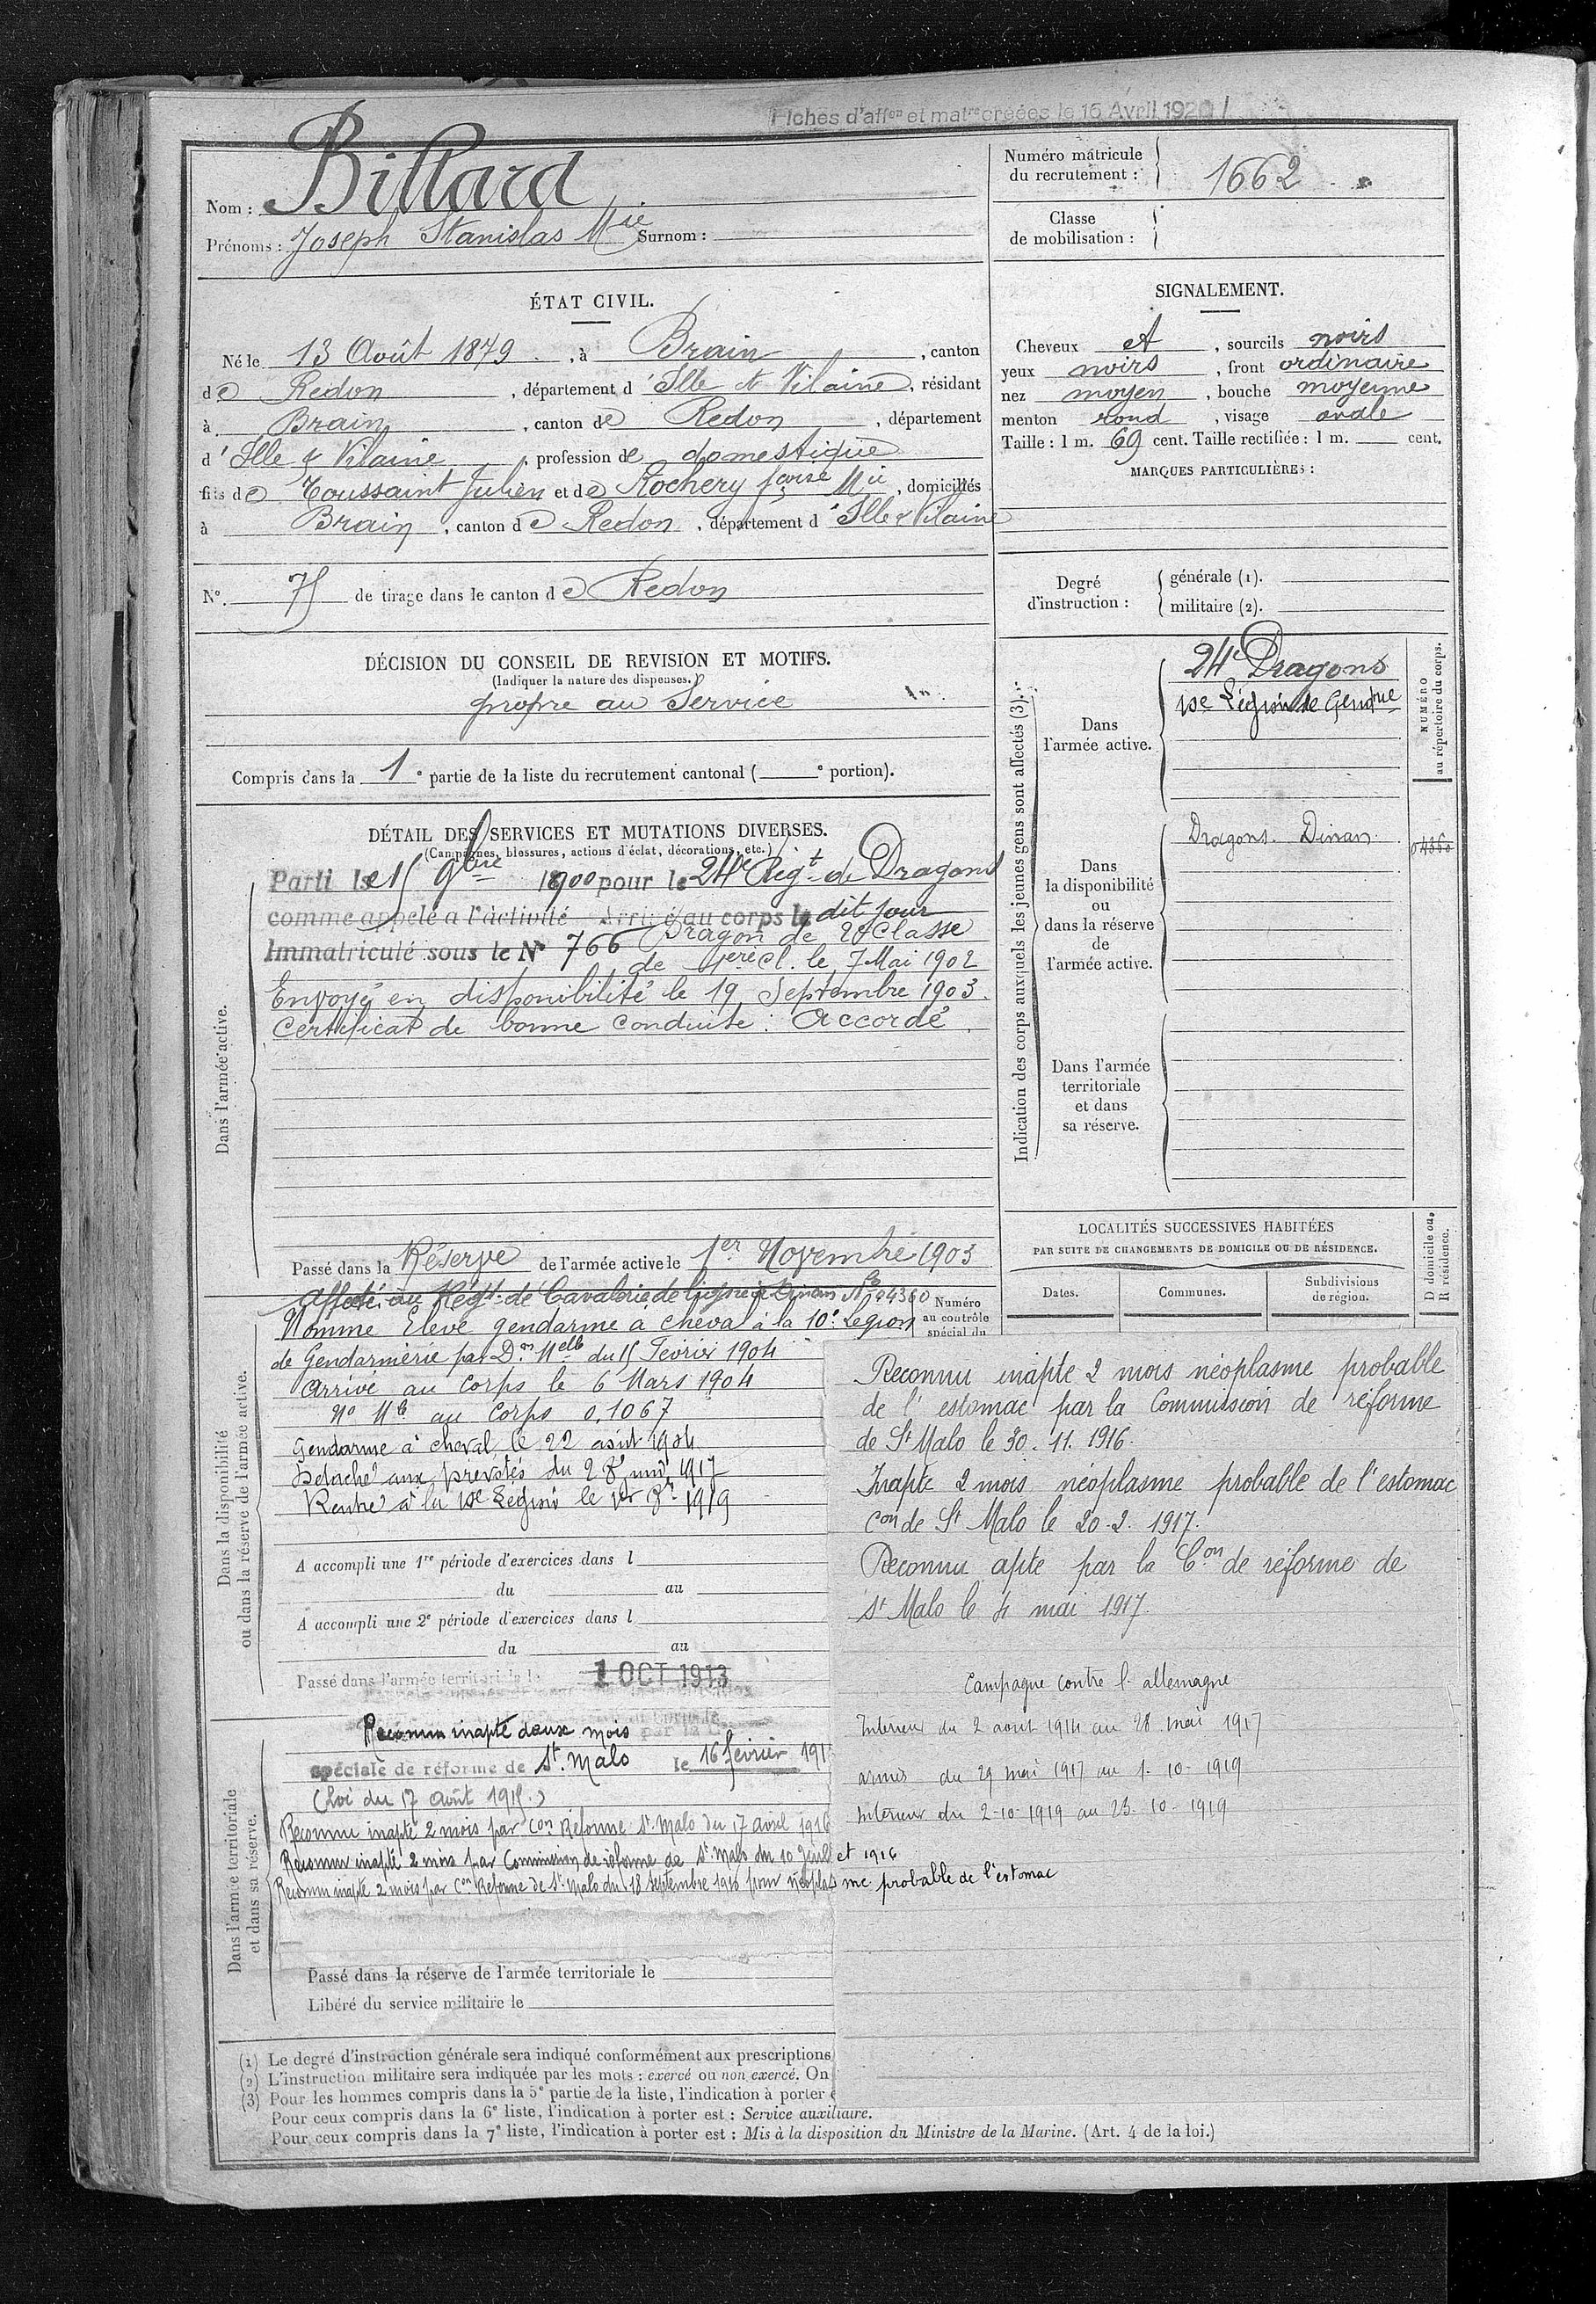 Fiches d'affon et matre créées le 16 Avril 1920
Nom : Billard
Prénoms : Joseph Stanislas Mie Surnom :
Numéro matricule du recrutement : 1662
Classe de mobilisation :
ÉTAT CIVIL.
Né le 13 Août 1879, à Brain, canton
de Redon, département d'Ille et Vilaine, résidant
à Brain, canton de Redon, département
d'Ille & Vilaine, profession de domestique
fils de Toussaint Julien et de Rochery fçoise Mie, domiciliés
à Brain, canton de Redon, département d'Ille & Vilaine
N° 75 de tirage dans le canton de Redon
SIGNALEMENT.
Cheveux et, sourcils noirs
yeux noirs, front ordinaire
nez moyen, bouche moyenne
menton rond, visage ovale
Taille : 1 m. 69 cent. Taille rectifiée : 1 m. cent.
MARQUES PARTICULIÈRES :
Degré d'instruction : générale (1).
militaire (2).
DÉCISION DU CONSEIL DE REVISION ET MOTIFS.
(Indiquer la nature des dispenses.)
propre au Service
Compris dans la 1e partie de la liste du recrutement cantonal ( e portion).
DÉTAIL DES SERVICES ET MUTATIONS DIVERSES.
(Campagnes, blessures, actions d'éclat, décorations, etc.)
Dans l'armée active.
Parti le 15 9bre 1900 pour le 24e Régt de Dragons
comme appelé à l'activité Arrivé au corps le dit jour
Immatriculé sous le N° 766 Dragon de 2e Classe
de 1ère cl. le 7 Mai 1902
Envoyé en disponibilité le 19 Septembre 1903.
Certificat de bonne conduite : Accordé.
Passé dans la Réserve de l'armée active le 1er Novembre 1903
Indication des corps auxquels les jeunes gens sont affectés (3).
NUMÉRO au répertoire du corps.
Dans l'armée active.
24e Dragons
10e Légion de Gendrie
Dans la disponibilité ou dans la réserve de l'armée active.
Dragons. Dinan.
04360
Dans l'armée territoriale et dans sa réserve.
LOCALITÉS SUCCESSIVES HABITÉES
PAR SUITE DE CHANGEMENTS DE DOMICILE OU DE RÉSIDENCE.
Dates. Communes. Subdivisions de région.
D domicile ou R résidence.
Dans la disponibilité ou dans la réserve de l'armée active.
Affecté au Régt de Cavalerie de ligne à Dinan No 04360
Numéro au contrôle spécial du
Nommé Elève gendarme à cheval à la 10e Légion
de Gendarmerie par Don Melle du 15 Février 1904
Arrivé au Corps le 6 Mars 1904
No Mle au Corps 0.1067
Gendarme à cheval le 22 août 1904
Détaché aux prévôtés du 28 mai 1917
Rentré à la 10e Légion le 1er 8bre 1919
A accompli une 1re période d'exercices dans l
du au
A accompli une 2e période d'exercices dans l
du au
Passé dans l'armée territoriale le 1 OCT 1913
Dans l'armée territoriale et dans sa réserve.
Reconnu inapte deux mois par la C.
spéciale de réforme de St. Malo le 16 février 191
(Loi du 17 Août 1915.)
Reconnu inapte 2 mois par Con Réforme St Malo du 17 avril 1916
Reconnu inapte 2 mois par Commission de réforme de St Malo du 10 Juillet 1916
Reconnu inapte 2 mois par Con Réforme de St Malo du 18 septembre 1916 pour néoplasme probable de l'estomac
Passé dans la réserve de l'armée territoriale le
Libéré du service militaire le
Reconnu inapte 2 mois néoplasme probable
de l'estomac par la Commission de réforme
de St Malo le 30. 11. 1916.
Inapte 2 mois néoplasme probable de l'estomac
Con de St Malo le 20-2. 1917.
Reconnu apte par la Con de réforme de
St Malo le 4 mai 1917.
Campagne contre l'allemagne
Intérieur du 2 aout 1914 au 28. mai 1917
armées du 29 mai 1917 au 1-10-1919
Intérieur du 2-10-1919 au 23-10-1919
(1) Le degré d'instruction générale sera indiqué conformément aux prescriptions
(2) L'instruction militaire sera indiquée par les mots : exercé ou non exercé. On
(3) Pour les hommes compris dans la 5e partie de la liste, l'indication à porter e
Pour ceux compris dans la 6e liste, l'indication à porter est : Service auxiliaire.
Pour ceux compris dans la 7e liste, l'indication à porter est : Mis à la disposition du Ministre de la Marine. (Art. 4 de la loi.)